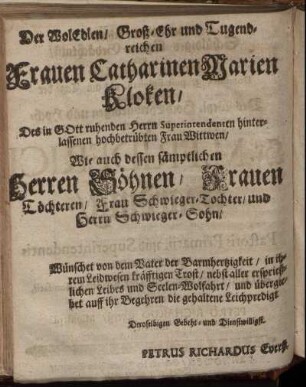 Der WolEdlen/ Groß-Ehr und Tugend-
reichen
Frauen Catharinen Marien
Kloken/
Des in GOtt ruhenden Herrn Superintendenten hinter-
lassenen hochbetrübten Frau Wittwen/
Wie auch dessen sämptlichen
Herren Söhnen/ Frauen
Töchteren/ Frau Schwieger-Tochter/ und
Herrn Schwieger-Sohn/
Wünschet von dem Vater der Barmhertzigkeit/ in ih-
rem Leidwesen kräfftigen Trost/ nebst aller ersprieß-
lichen Leibes und Seelen-Wolfahrt/ und überge-
bet auff ihr Begehren die gehaltene Leichpredigt
Deroselbigen Gebeht- und Dienstwilligst.
PETRUS RICHARDUS Everß.